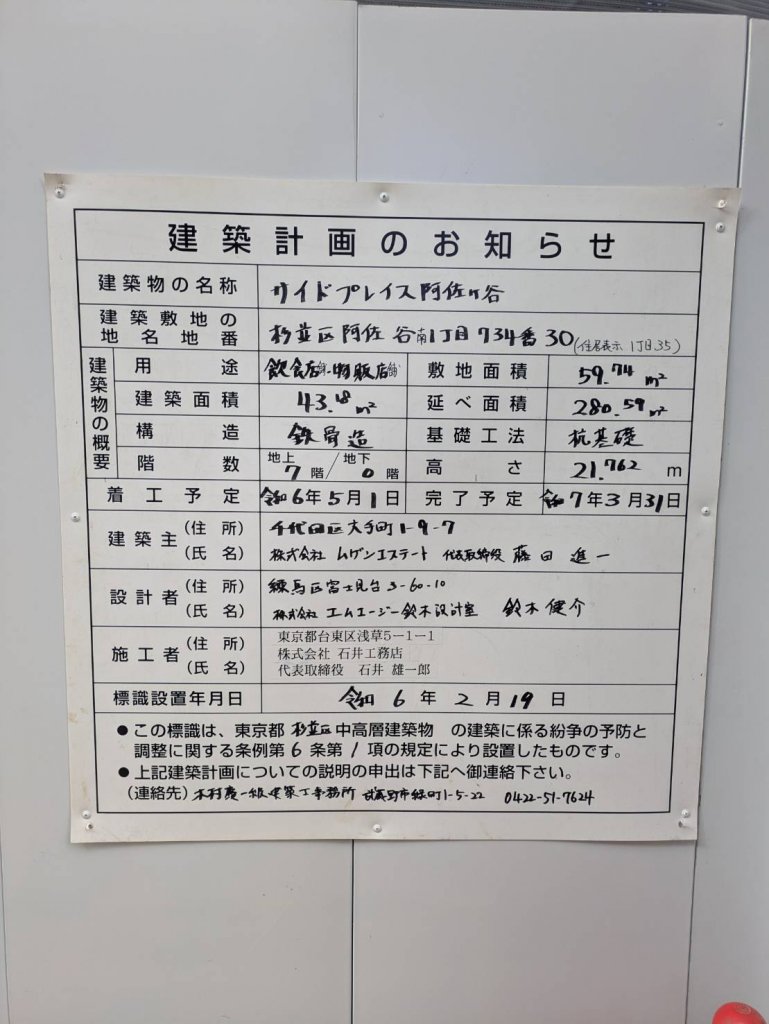 建築計画のお知らせ
建築物の名称 サイドプレイス阿佐ヶ谷
建築敷地の地名地番 杉並区阿佐谷南1丁目734番30(住居表示 1丁目35)
建築物の概要
用途 飲食店舗・物販店舗 敷地面積 59.74㎡
建築面積 43.18㎡ 延べ面積 280.59㎡
構造 鉄骨造 基礎工法 杭基礎
階数 地上7階/地下0階 高さ 21.762m
着工予定 令和6年5月1日 完了予定 令和7年3月31日
建築主(住所) 千代田区大手町1-9-7
(氏名) 株式会社 ムゲンエステート 代表取締役 藤田 進一
設計者(住所) 練馬区富士見台3-60-10
(氏名) 株式会社 エムエージー鈴木設計室 鈴木 健介
施工者(住所) 東京都台東区浅草5-1-1
(氏名) 株式会社 石井工務店
代表取締役 石井 雄一郎
標識設置年月日 令和6年2月19日
●この標識は、東京都 杉並区中高層建築物 の建築に係る紛争の予防と
調整に関する条例第6条第1項の規定により設置したものです。
●上記建築計画についての説明の申出は下記へ御連絡下さい。
(連絡先) 木村慶一級建築士事務所 武蔵野市緑町1-5-22 0422-51-7624